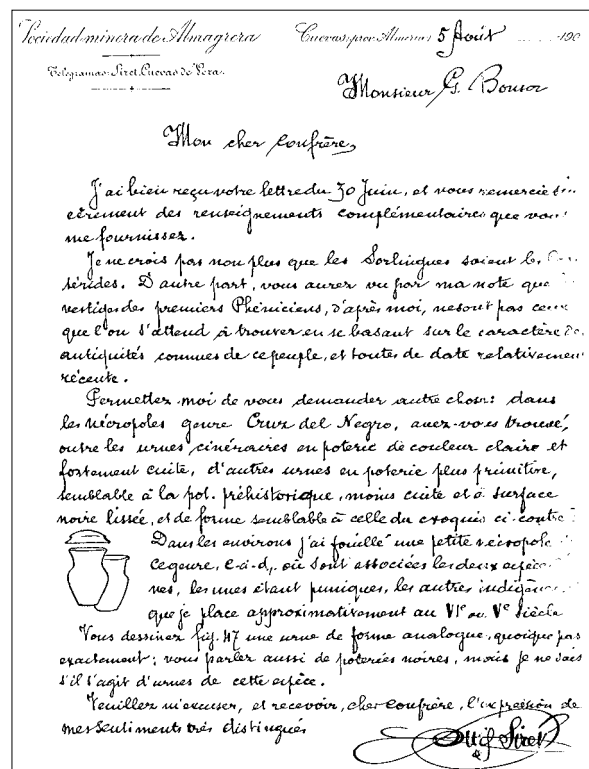 Sociedad minera de Almagrera Cuevas, por Almeria, 5 Août 190
Telegramas: Siret, Cuevas de Vera.
Monsieur G. Bonsor
Mon cher confrère,
J'ai bien reçu votre lettre du 30 Juin, et vous remercie sin
cèrement des renseignements complémentaires que vous
me fournissez.
Je ne crois pas non plus que les Sorlingues soient les Cas
sérides. D'autre part, vous aurez vu par ma note que
vestiges des premiers Phéniciens, d'après moi, ne sont pas ceux
que l'on s'attend à trouver en se basant sur le caractère de
antiquités connues de ce peuple, et toutes de date relativement
récente.
Permettez-moi de vous demander autre chose: dans
les nécropoles genre Cruz del Negro, avez-vous trouvé,
outre les urnes cinéraires en poterie de couleur claire et
fortement cuite, d'autres urnes en poterie plus primitive,
semblable à la pot. préhistorique, moins cuite et à surface
noire lissée, et de forme semblable à celle du croquis ci-contre?
Dans les environs j'ai fouillé une petite nécropole
ce genre, c-à-d, où sont associées les deux espèce
nes, les unes étant puniques, les autres indigènes
que je place approximativement au VIe ou Ve Siècle
Vous dessinez fig. 47 une urne de forme analogue, quoique pas
exactement; vous parlez aussi de poteries noires, mais je ne sais
s'il s'agit d'urnes de cette espèce.
Veuillez m'excuser, et recevoir, cher confrère, l'expression de
mes sentiments très distingués
Siret